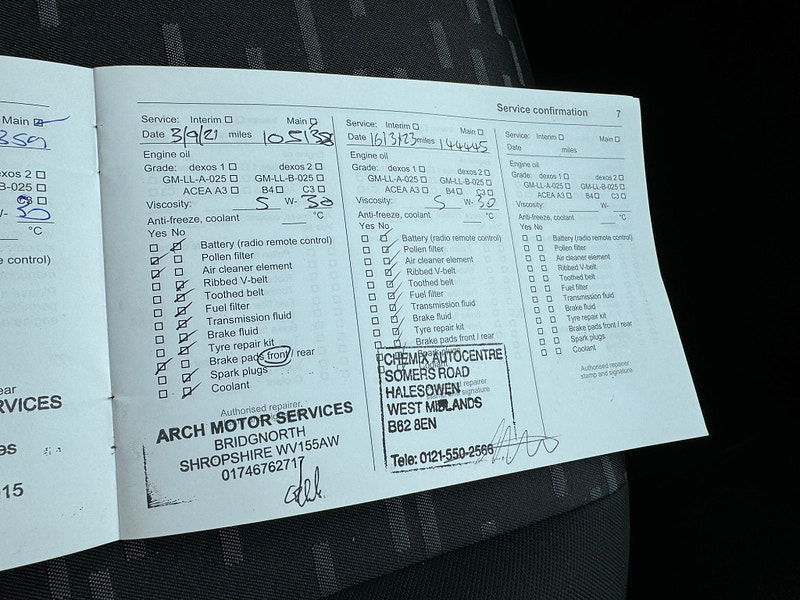 Service confirmation 7
Main
359
dexos 2
LL-B-025
C3
W- 30
°C
e control)
rear
RVICES
15
Service: Interim Main
Date 3/9/21 miles 105138
Engine oil
Grade: dexos 1 dexos 2
GM-LL-A-025 GM-LL-B-025
ACEA A3 B4 C3
Viscosity: 5 W- 30
Anti-freeze, coolant °C
Yes No
Battery (radio remote control)
Pollen filter
Air cleaner element
Ribbed V-belt
Toothed belt
Fuel filter
Transmission fluid
Brake fluid
Tyre repair kit
Brake pads front / rear
Spark plugs
Coolant
Authorised repairer
ARCH MOTOR SERVICES
BRIDGNORTH
SHROPSHIRE WV155AW
01746762717
Service: Interim Main
Date 16/3/23 miles 144445
Engine oil
Grade: dexos 1 dexos 2
GM-LL-A-025 GM-LL-B-025
ACEA A3 B4 C3
Viscosity: 5 W- 30
Anti-freeze, coolant °C
Yes No
Battery (radio remote control)
Pollen filter
Air cleaner element
Ribbed V-belt
Toothed belt
Fuel filter
Transmission fluid
Brake fluid
Tyre repair kit
Brake pads front / rear
Spark plugs
Coolant
CHEMIX AUTOCENTRE
SOMERS ROAD
HALESOWEN
WEST MIDLANDS
B62 8EN
Tele: 0121-550-2566
Service: Interim Main
Date miles
Engine oil
Grade: dexos 1 dexos 2
GM-LL-A-025 GM-LL-B-025
ACEA A3 B4 C3
Viscosity: W-
Anti-freeze, coolant °C
Yes No
Battery (radio remote control)
Pollen filter
Air cleaner element
Ribbed V-belt
Toothed belt
Fuel filter
Transmission fluid
Brake fluid
Tyre repair kit
Brake pads front / rear
Spark plugs
Coolant
Authorised repairer
stamp and signature